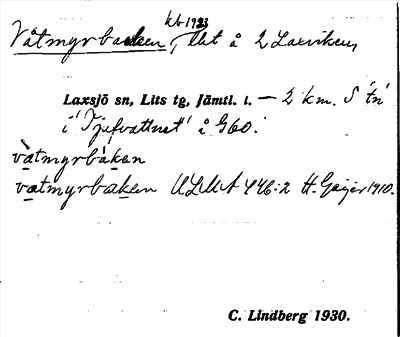 kb 1923
Våtmyrbacken, lht å 2 Laxviken,
Laxsjö sn, Lits tg, Jämtl. l. — 2 km. S 'tn'
i 'Tjufvattnet' å G60.
våtmyrbakan
vatmyrbaken ULMA 446:2 H. Geijer 1910.
C. Lindberg 1930.